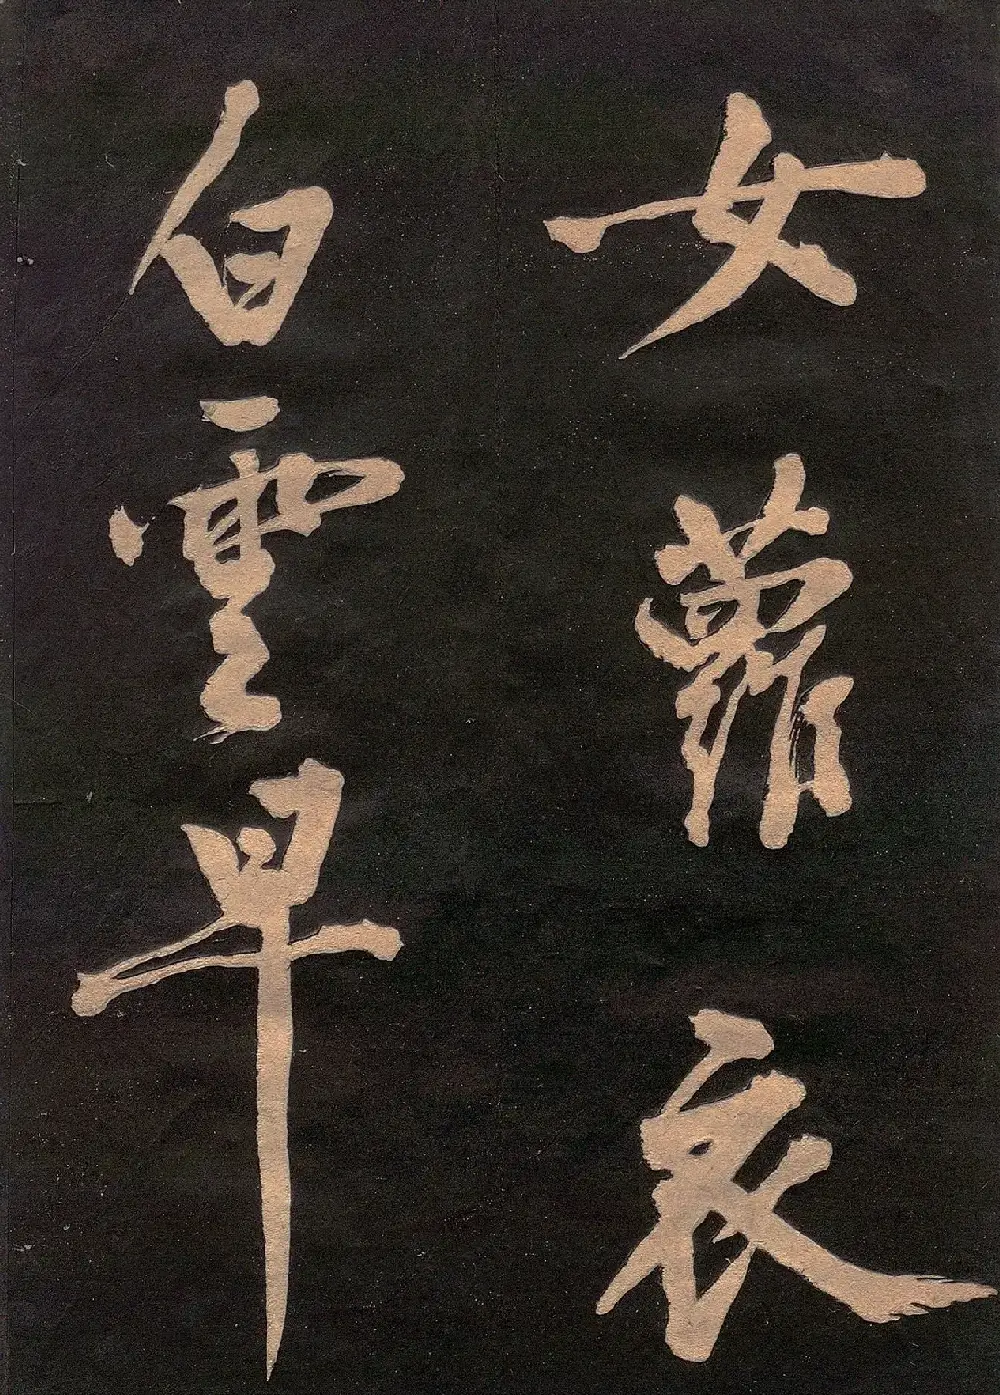 女蘿衣
白雲早